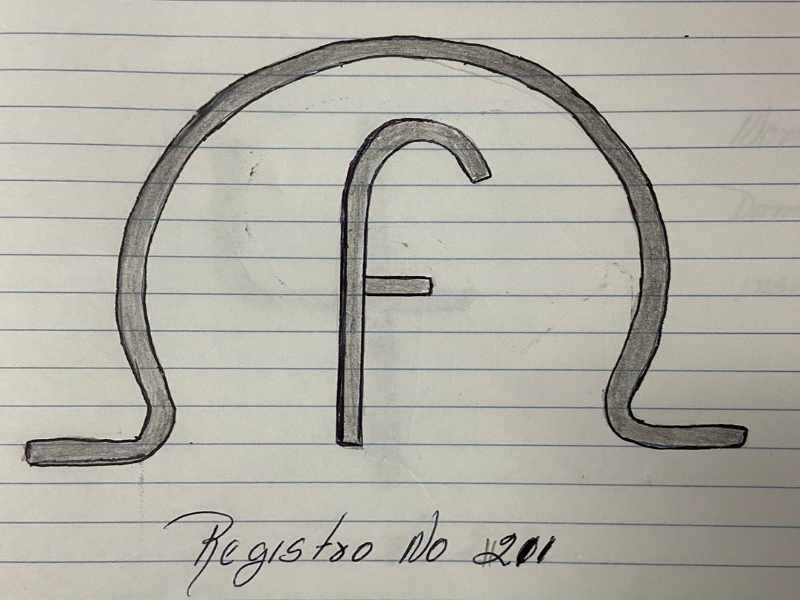 f
Registro No 201